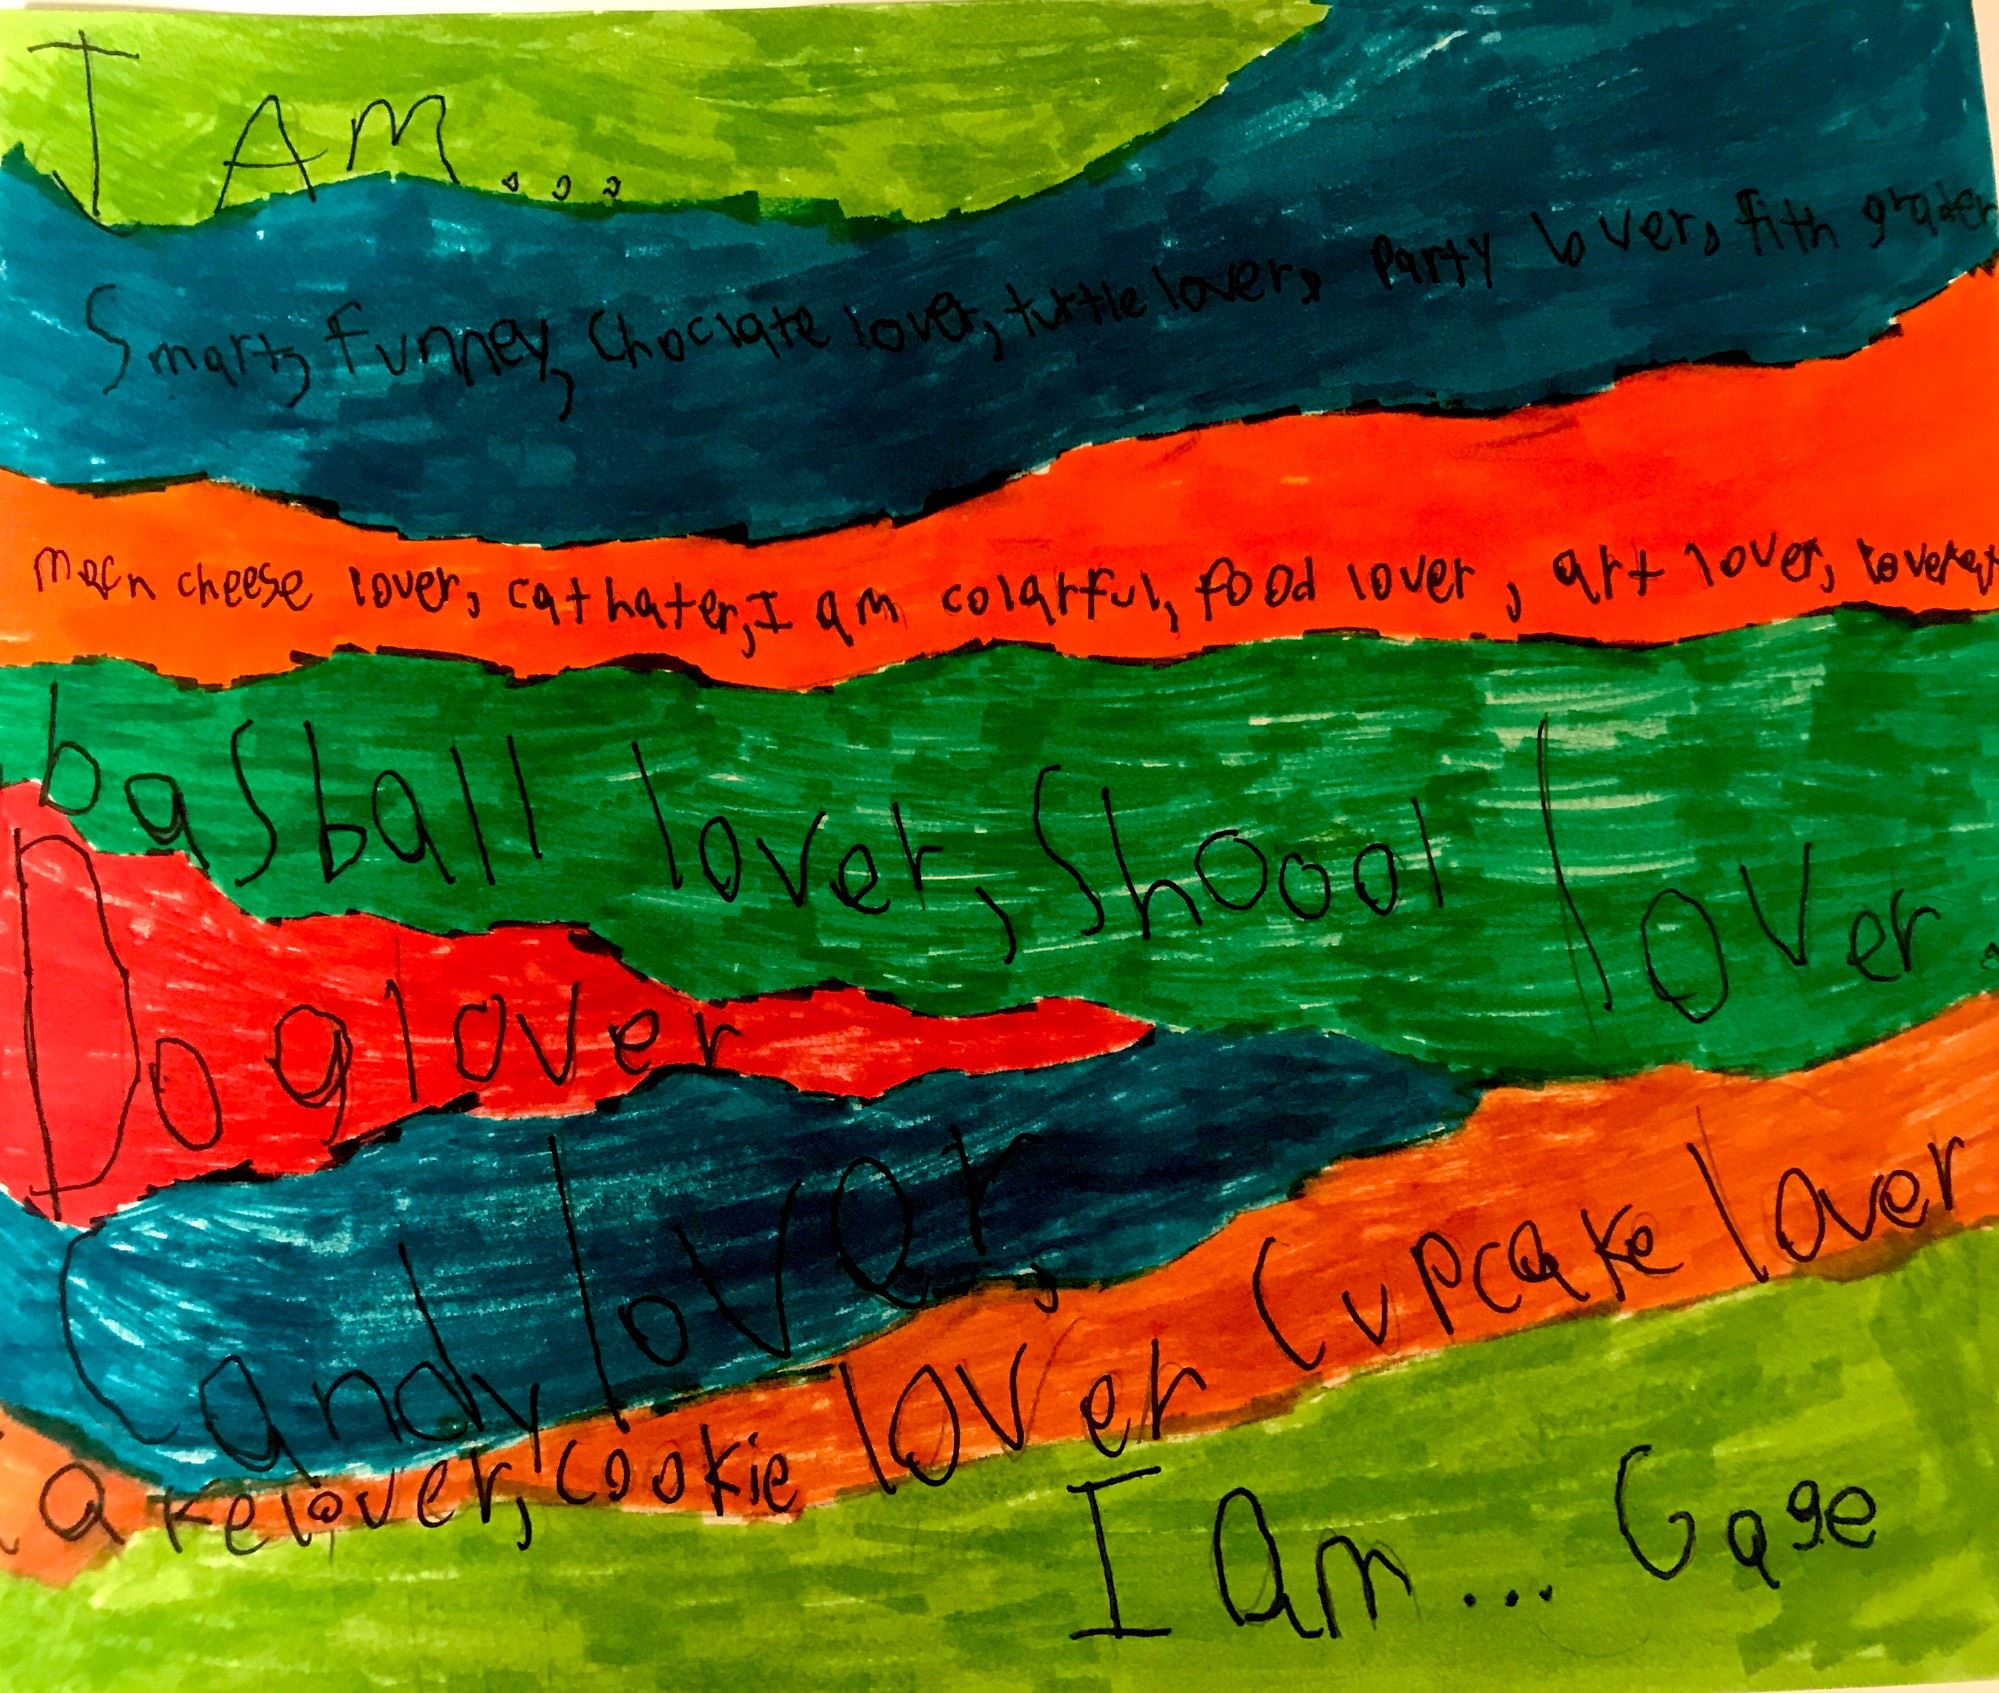 I AM...
Smart, funney, Choclate lover, turtle lover, Party lover, fith grader
macn cheese lover, cat hater, I am colarful, food lover, art lover,
basball lover, Shoool lover.
Dog lover
Candy lover,
cake lover, cookie lover Cupcake lover
I am... Gage